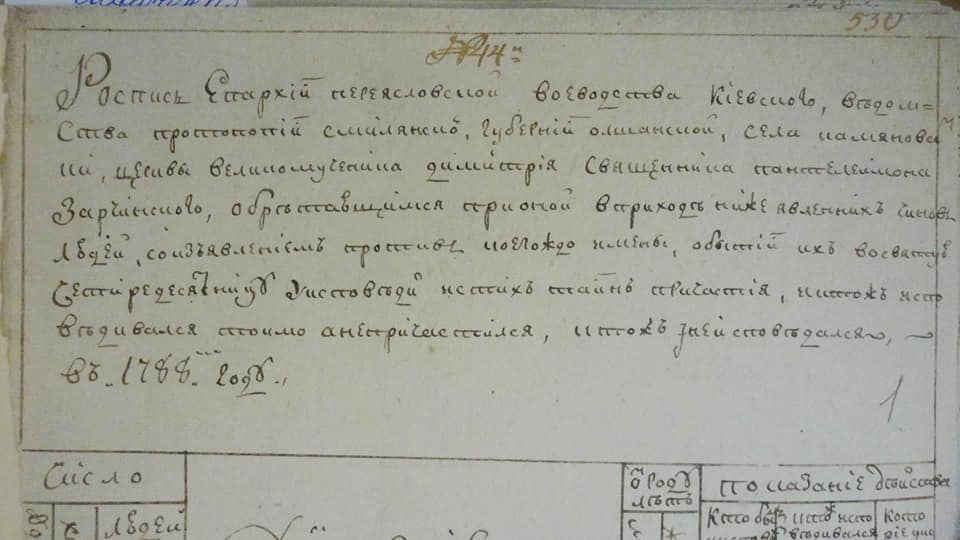 530
№ 44
Роспись Епархїй переясловской воеводства Кїевского, вѣдом=
ства протопопїй смилянской, губернїй олшанской, села
церквы великомученика димитрїя Священника пантелеймона
Зарчинского, обрѣтающимся при оной в приходѣ ниже явленнихъ чиновъ
людей, со изъявленїемъ противъ коегождо имены, о бытїй ихъ во святую
Четиредесятницу у исповѣди и стихъ таинъ причастїя, и ктожъ испо
вѣдивался токмо а не причастился, и ктожъ и не исповѣдался,
въ 1788 году
1
Число
людей
от роду
лѣтъ
показанїе дѣйства
Кто быв и кто испо Кото
вѣдивался